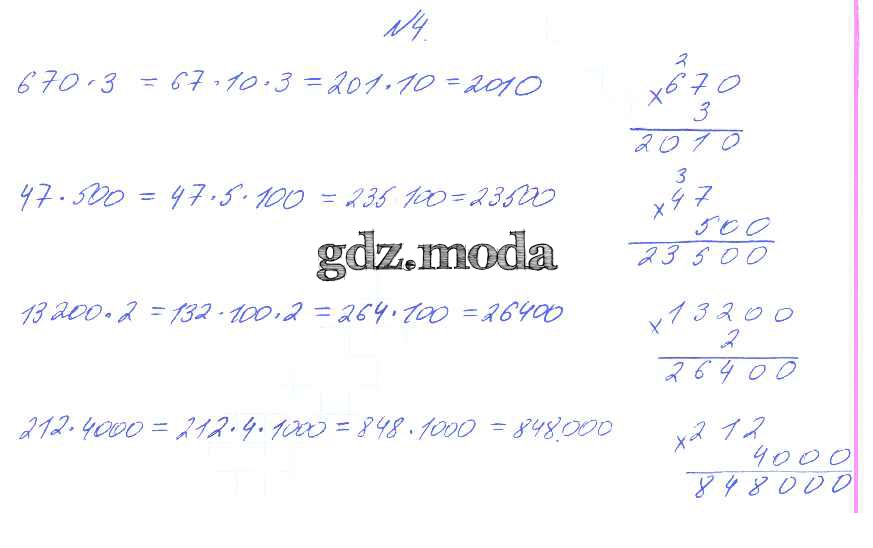 №4.
670 · 3 = 67 · 10 · 3 = 201 · 10 = 2010
2
× 670
3
2010
47 · 500 = 47 · 5 · 100 = 235 · 100 = 23500
3
× 47
500
23500
gdz.moda
13200 · 2 = 132 · 100 · 2 = 264 · 100 = 26400
× 13200
2
26400
212 · 4000 = 212 · 4 · 1000 = 848 · 1000 = 848.000
× 212
4000
848000